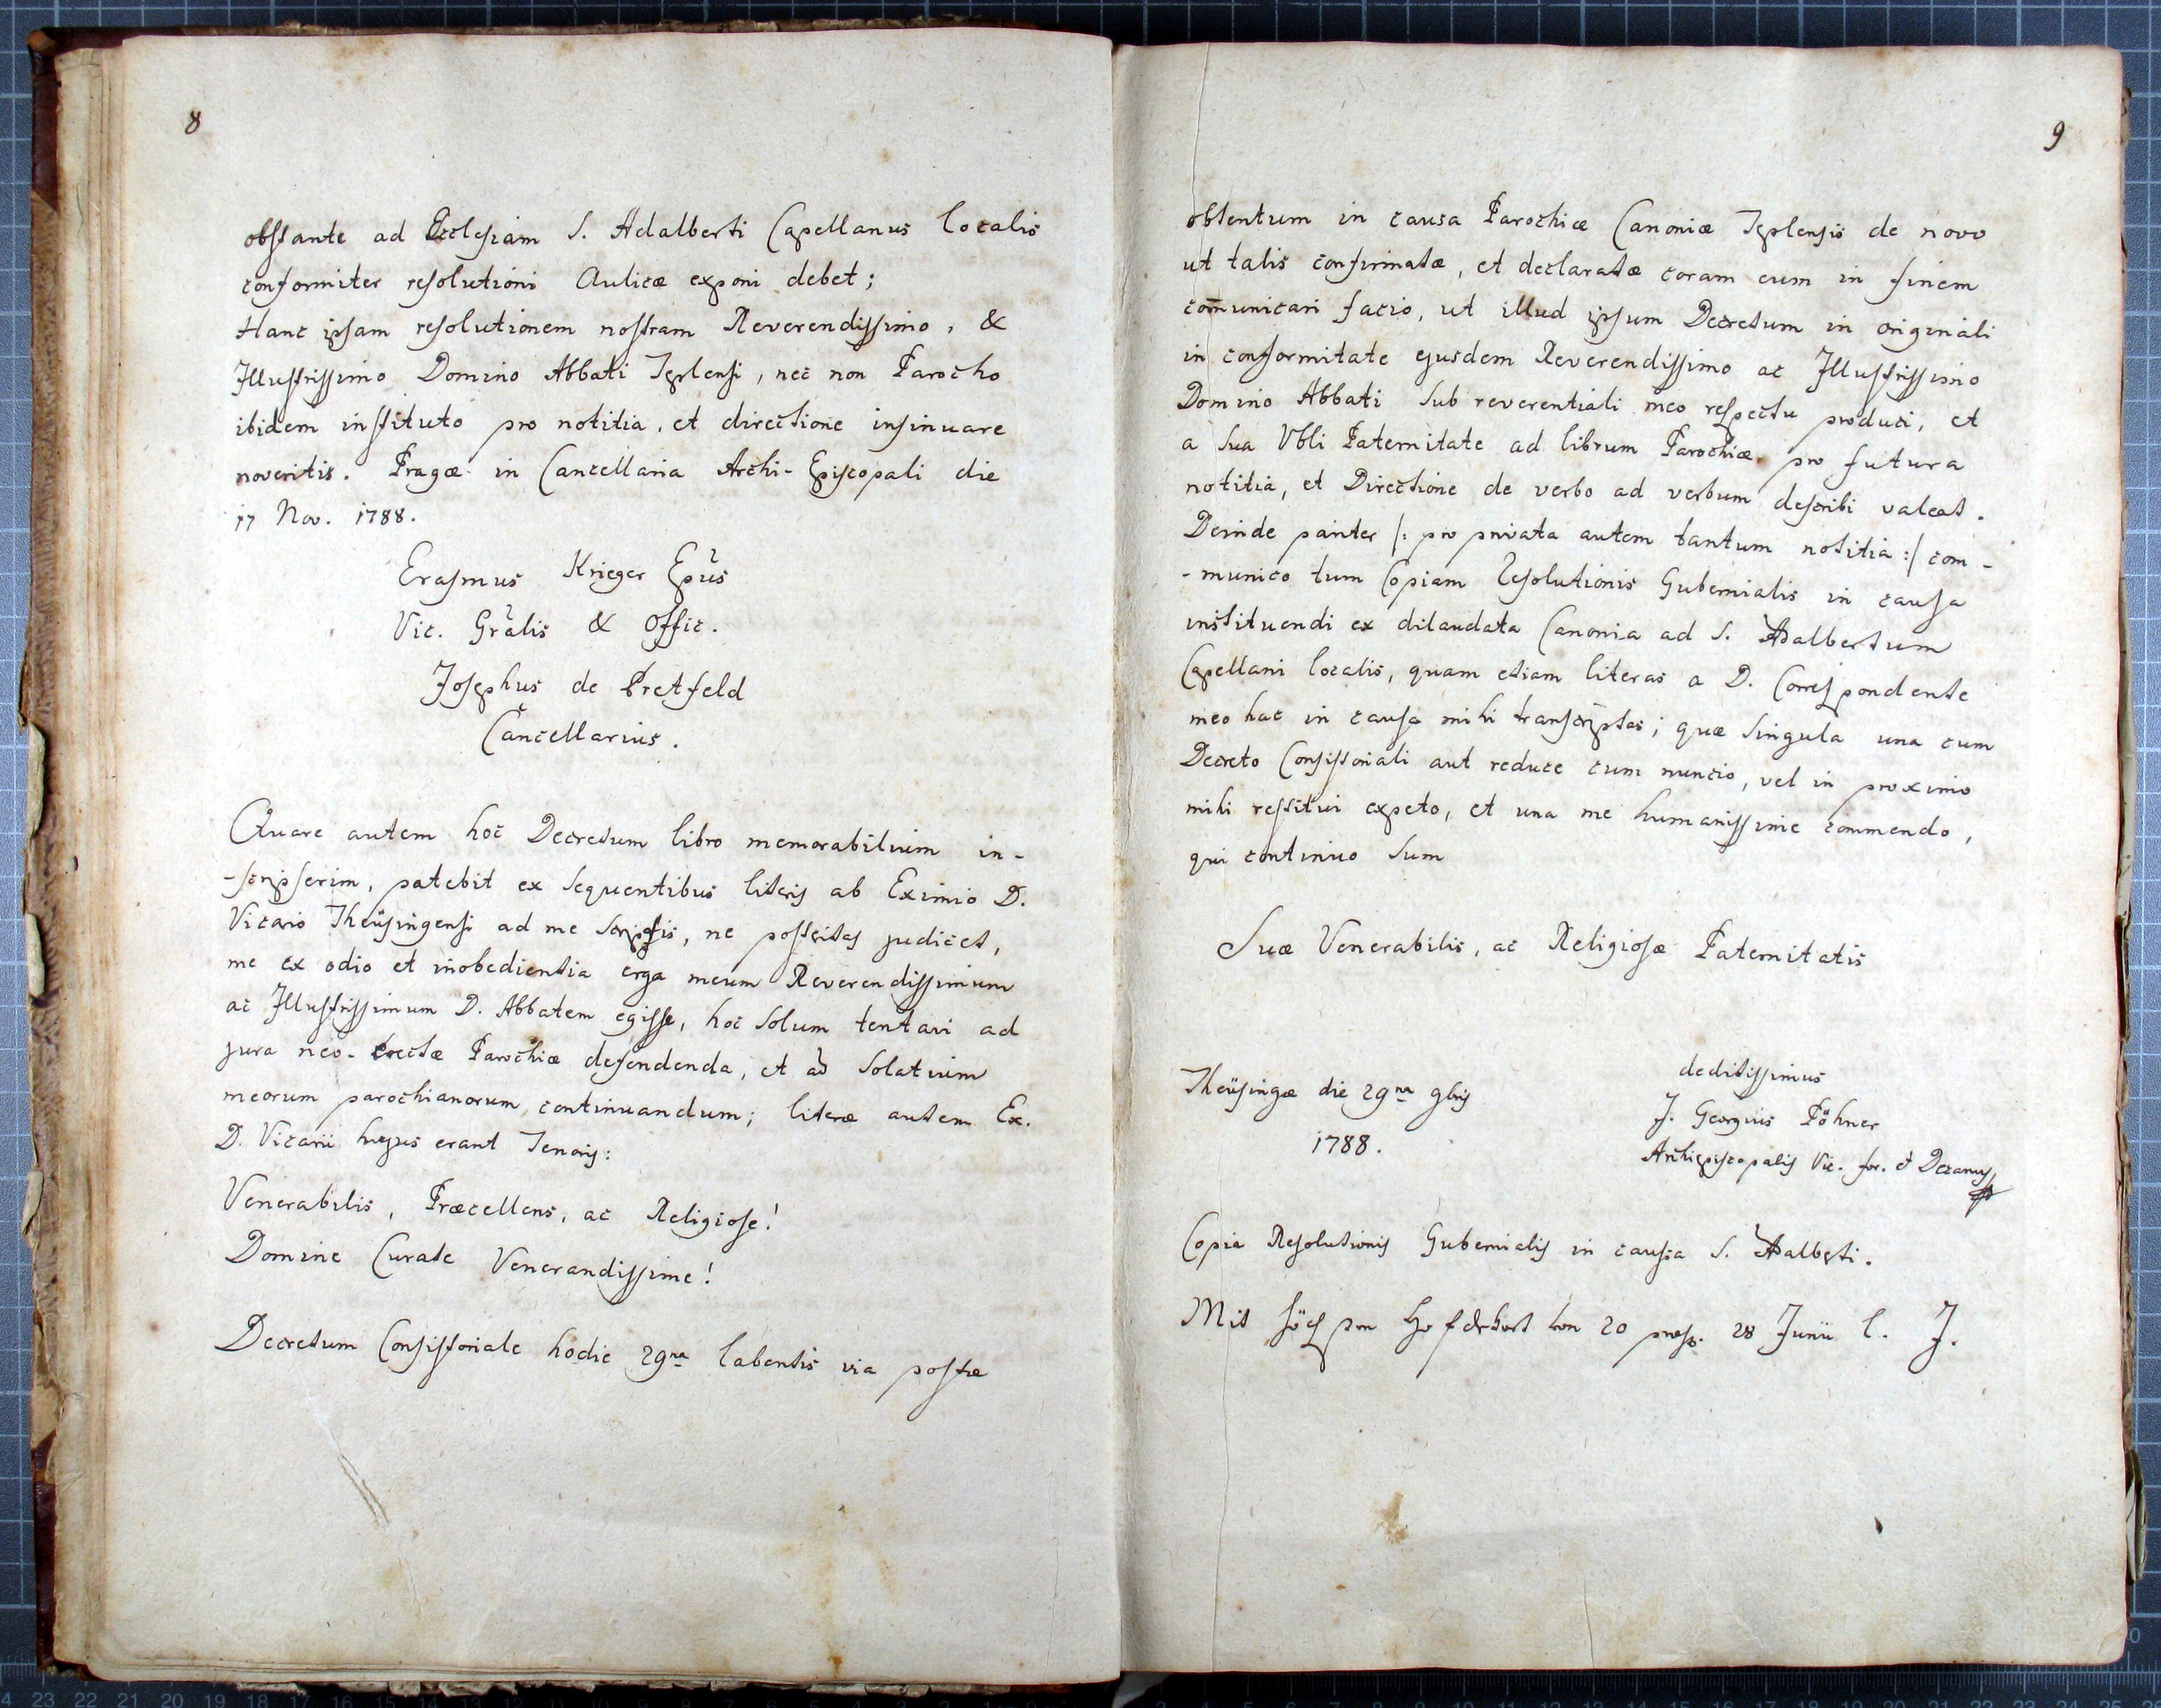 8
obstante ad Ecclesiam S. Adalberti Capellanus localis
conformiter resolutioni Aulicæ exponi debet;
Hanc ipsam resolutionem nostram Reverendissimo, &
Illustrissimo Domino Abbati Teplensi, nec non Parocho
ibidem instituto pro notitia, et directione insinuare
noveritis. Pragæ in Cancellaria Archi-Episcopali die
17 Nov. 1788.
Erasmus Krieger Epus
Vic. Gralis & Offic.
Josephus de Pretfeld
Cancellarius.
Quare autem hoc Decretum libro memorabilium in-
-scripserim, patebit ex sequentibus literis ab Eximio D.
Vicario Theüsingensi ad me scriptis, ne posteritas judicet,
me ex odio et inobedientia erga meum Reverendissimum
ac Illustrissimum D. Abbatem egisse, hoc solum tentavi ad
jura neo-erectæ Parochiæ defendenda, et ad Solatium
meorum parochianorum continuandum; literæ autem Ex.
D. Vicarii hujus erant Tenoris:
Venerabilis, Præcellens, ac Religiose!
Domine Curate Venerandissime!
Decretum Consistoriale hodie 29na labentis via postæ
9
obtentum in causa Parochiæ Canoniæ Teplensis de novo
ut talis confirmatæ, et declaratæ coram eum in finem
com̄unicari facio, ut illud ipsum Decretum in originali
in conformitate ejusdem Reverendissimo ac Illustrissimo
Domino Abbati sub reverentiali meo respectu produci, et
a sua Vbli Paternitate ad librum Parochiæ pro futura
notitia, et Directione de verbo ad verbum describi valeat.
Deinde pariter /: pro privata autem tantum notitia :/ com-
-munico tum Copiam Resolutionis Gubernialis in causa
instituendi ex dilaudata Canonia ad S. Adalbertum
Capellani localis, quam etiam literas a D. Correspondente
meo hac in causa mihi transcriptas; quæ singula una cum
Decreto Consistoriali aut reduce cum nuncio, vel in proximo
mihi restitui expeto, et una me humanissime commendo,
qui continuo sum
Suæ Venerabilis, ac Religiosæ Paternitatis
deditissimus
Theüsingæ die 29na 9bris
J. Georgius Pöhner
1788.
Archiepiscopalis Vic. for. et Decanus
Copia Resolutionis Gubernialis in causa S. Adalberti.
Mit 20 28 Junii l. J.